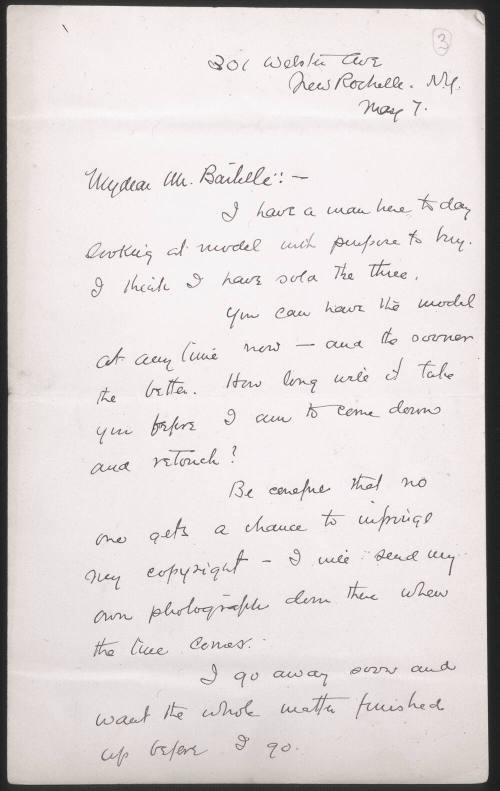 3
301 Webster Ave
New Rochelle. N.Y.
May 7.
My dear Mr. Bertelli:—
I have a man here to day
looking at model with purpose to buy.
I think I have sold the three.
You can have the model
at any time now — and the sooner
the better. How long will it take
you before I am to come down
and retouch?
Be careful that no
one gets a chance to infringe
my copyright — I will send my
own photographer down there when
the time comes.
I go away soon and
want the whole matter finished
up before I go.